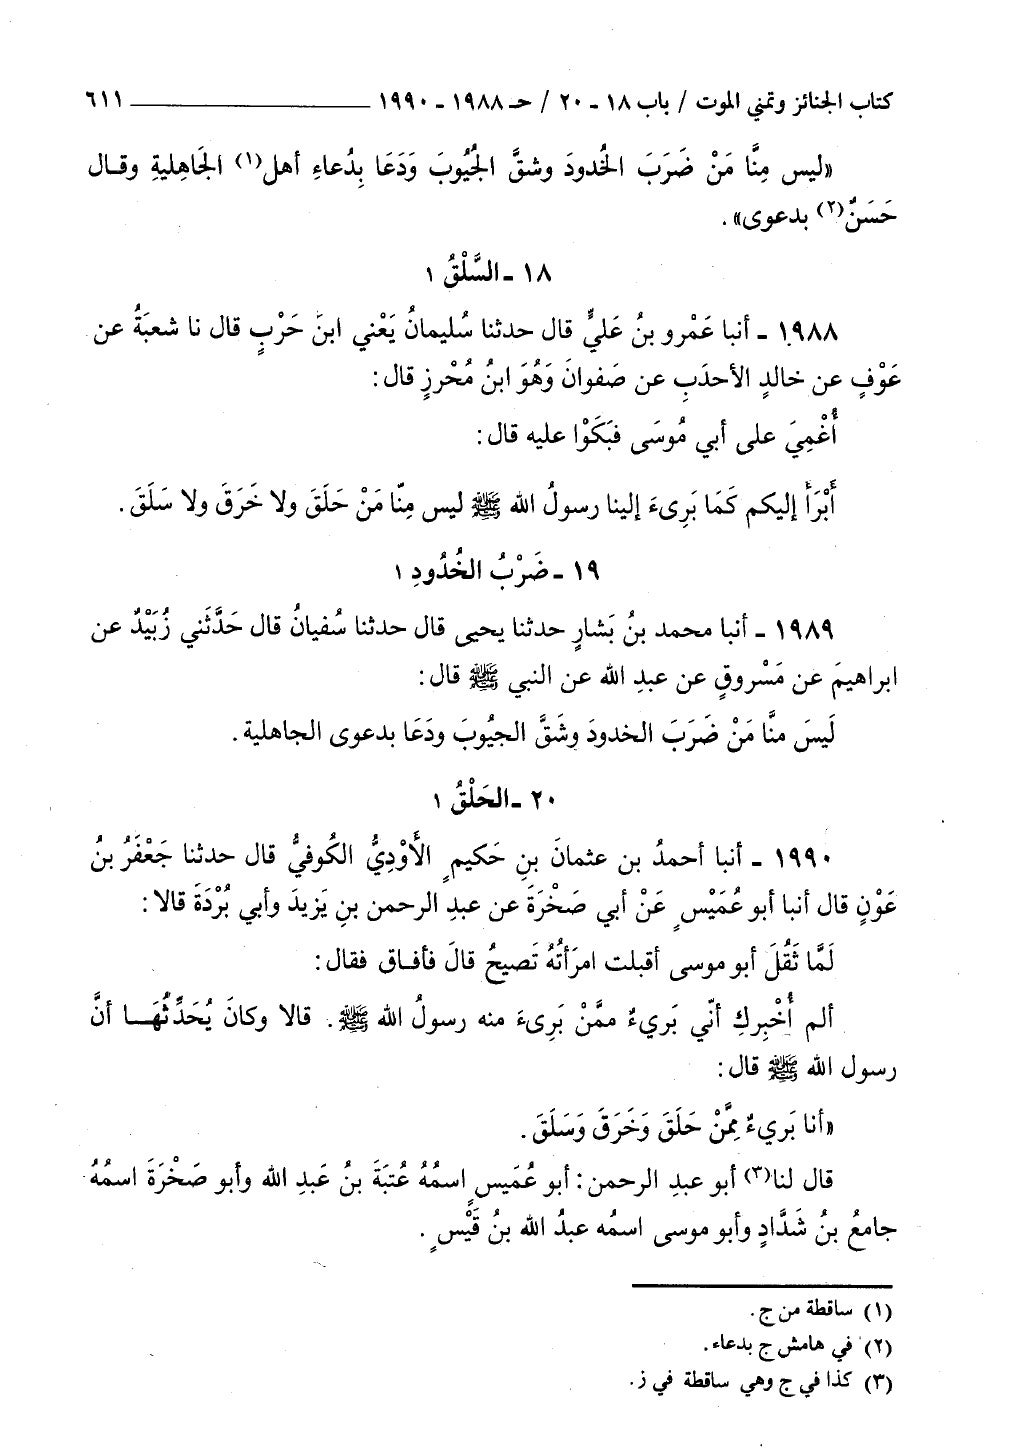 كتاب الجنائز وتمني الموت / باب ١٨ - ٢٠ / حـ ١٩٨٨ - ١٩٩٠ ـــــــــ ٦١١
«ليس مِنَّا مَنْ ضَرَبَ الخُدودَ وشقَّ الجُيُوبَ وَدَعَا بِدُعاءِ أهل(١) الجَاهِليةِ وقـال
حَسَنٌ(٢) بدعوى» .
١٨ - السَّلْقُ ١
١٩٨٨ - أنبا عَمْرو بنُ عَليٍّ قال حدثنا سُليمانُ يَعْني ابنَ حَرْبٍ قال نا شعبَةُ عن
عَوْفٍ عن خالدٍ الأحدَبِ عن صَفوانَ وَهُوَ ابنُ مُحْرزٍ قال:
أُغْمِيَ على أبي مُوسَى فبَكَوْا عليه قال:
أَبْرَأ إليكم كَمَا بَرِىءَ إلينا رسولُ الله ﷺ ليس مِنّا مَنْ حَلَقَ ولا خَرَقَ ولا سَلَقَ .
١٩ - ضَرْبُ الخُدُودِ ١
١٩٨٩ - أنبا محمد بنُ بَشارٍ حدثنا يحيى قال حدثنا سُفيانُ قال حَدَّثَني زُبَيْدٌ عن
ابراهيمَ عن مَسْروقٍ عن عبدِ الله عن النبي ﷺ قال:
لَيسَ منَّا مَنْ ضَرَبَ الخدودَ وشَقَّ الجيُوبَ ودَعَا بدعوى الجاهلية .
٢٠ - الحَلْقُ ١
١٩٩٠ - أنبا أحمدُ بن عثمانَ بنِ حَكيمٍ الأَوْدِيُّ الكُوفيُّ قال حدثنا جَعْفَرُ بنُ
عَوْنٍ قال أنبا أبو عُمَيْسٍ عَنْ أبي صَخْرَةَ عن عبدِ الرحمن بنِ يَزيدَ وأبي بُرْدَةَ قالا:
لَمَّا ثَقُلَ أبو موسى أقبلت امرَأتُهُ تَصيحُ قالَ فأفـاق فقال:
ألم أُخْبِركِ أنّي بَريءٌ ممَّنْ بَرِىءَ منه رسولُ الله ﷺ . قالا وكانَ يُحَدِّثُهَـا أنَّ
رسول الله ﷺ قال:
«أنا بَريءٌ مِمَّنْ حَلَقَ وَخَرَقَ وَسَلَقَ .
قال لنا(٣) أبو عبدِ الرحمن: أبو عُمَيسٍ اسمُهُ عُتبَةَ بنُ عَبدِ الله وأبو صَخْرَةَ اسمُهُ
جامعُ بنُ شَدَّادٍ وأبو موسى اسمُه عبدُ الله بنُ قَيْسٍ .
(١) ساقطة من ج .
(٢) في هامش ج بدعاء .
(٣) كذا في ج وهي ساقطة في ز .